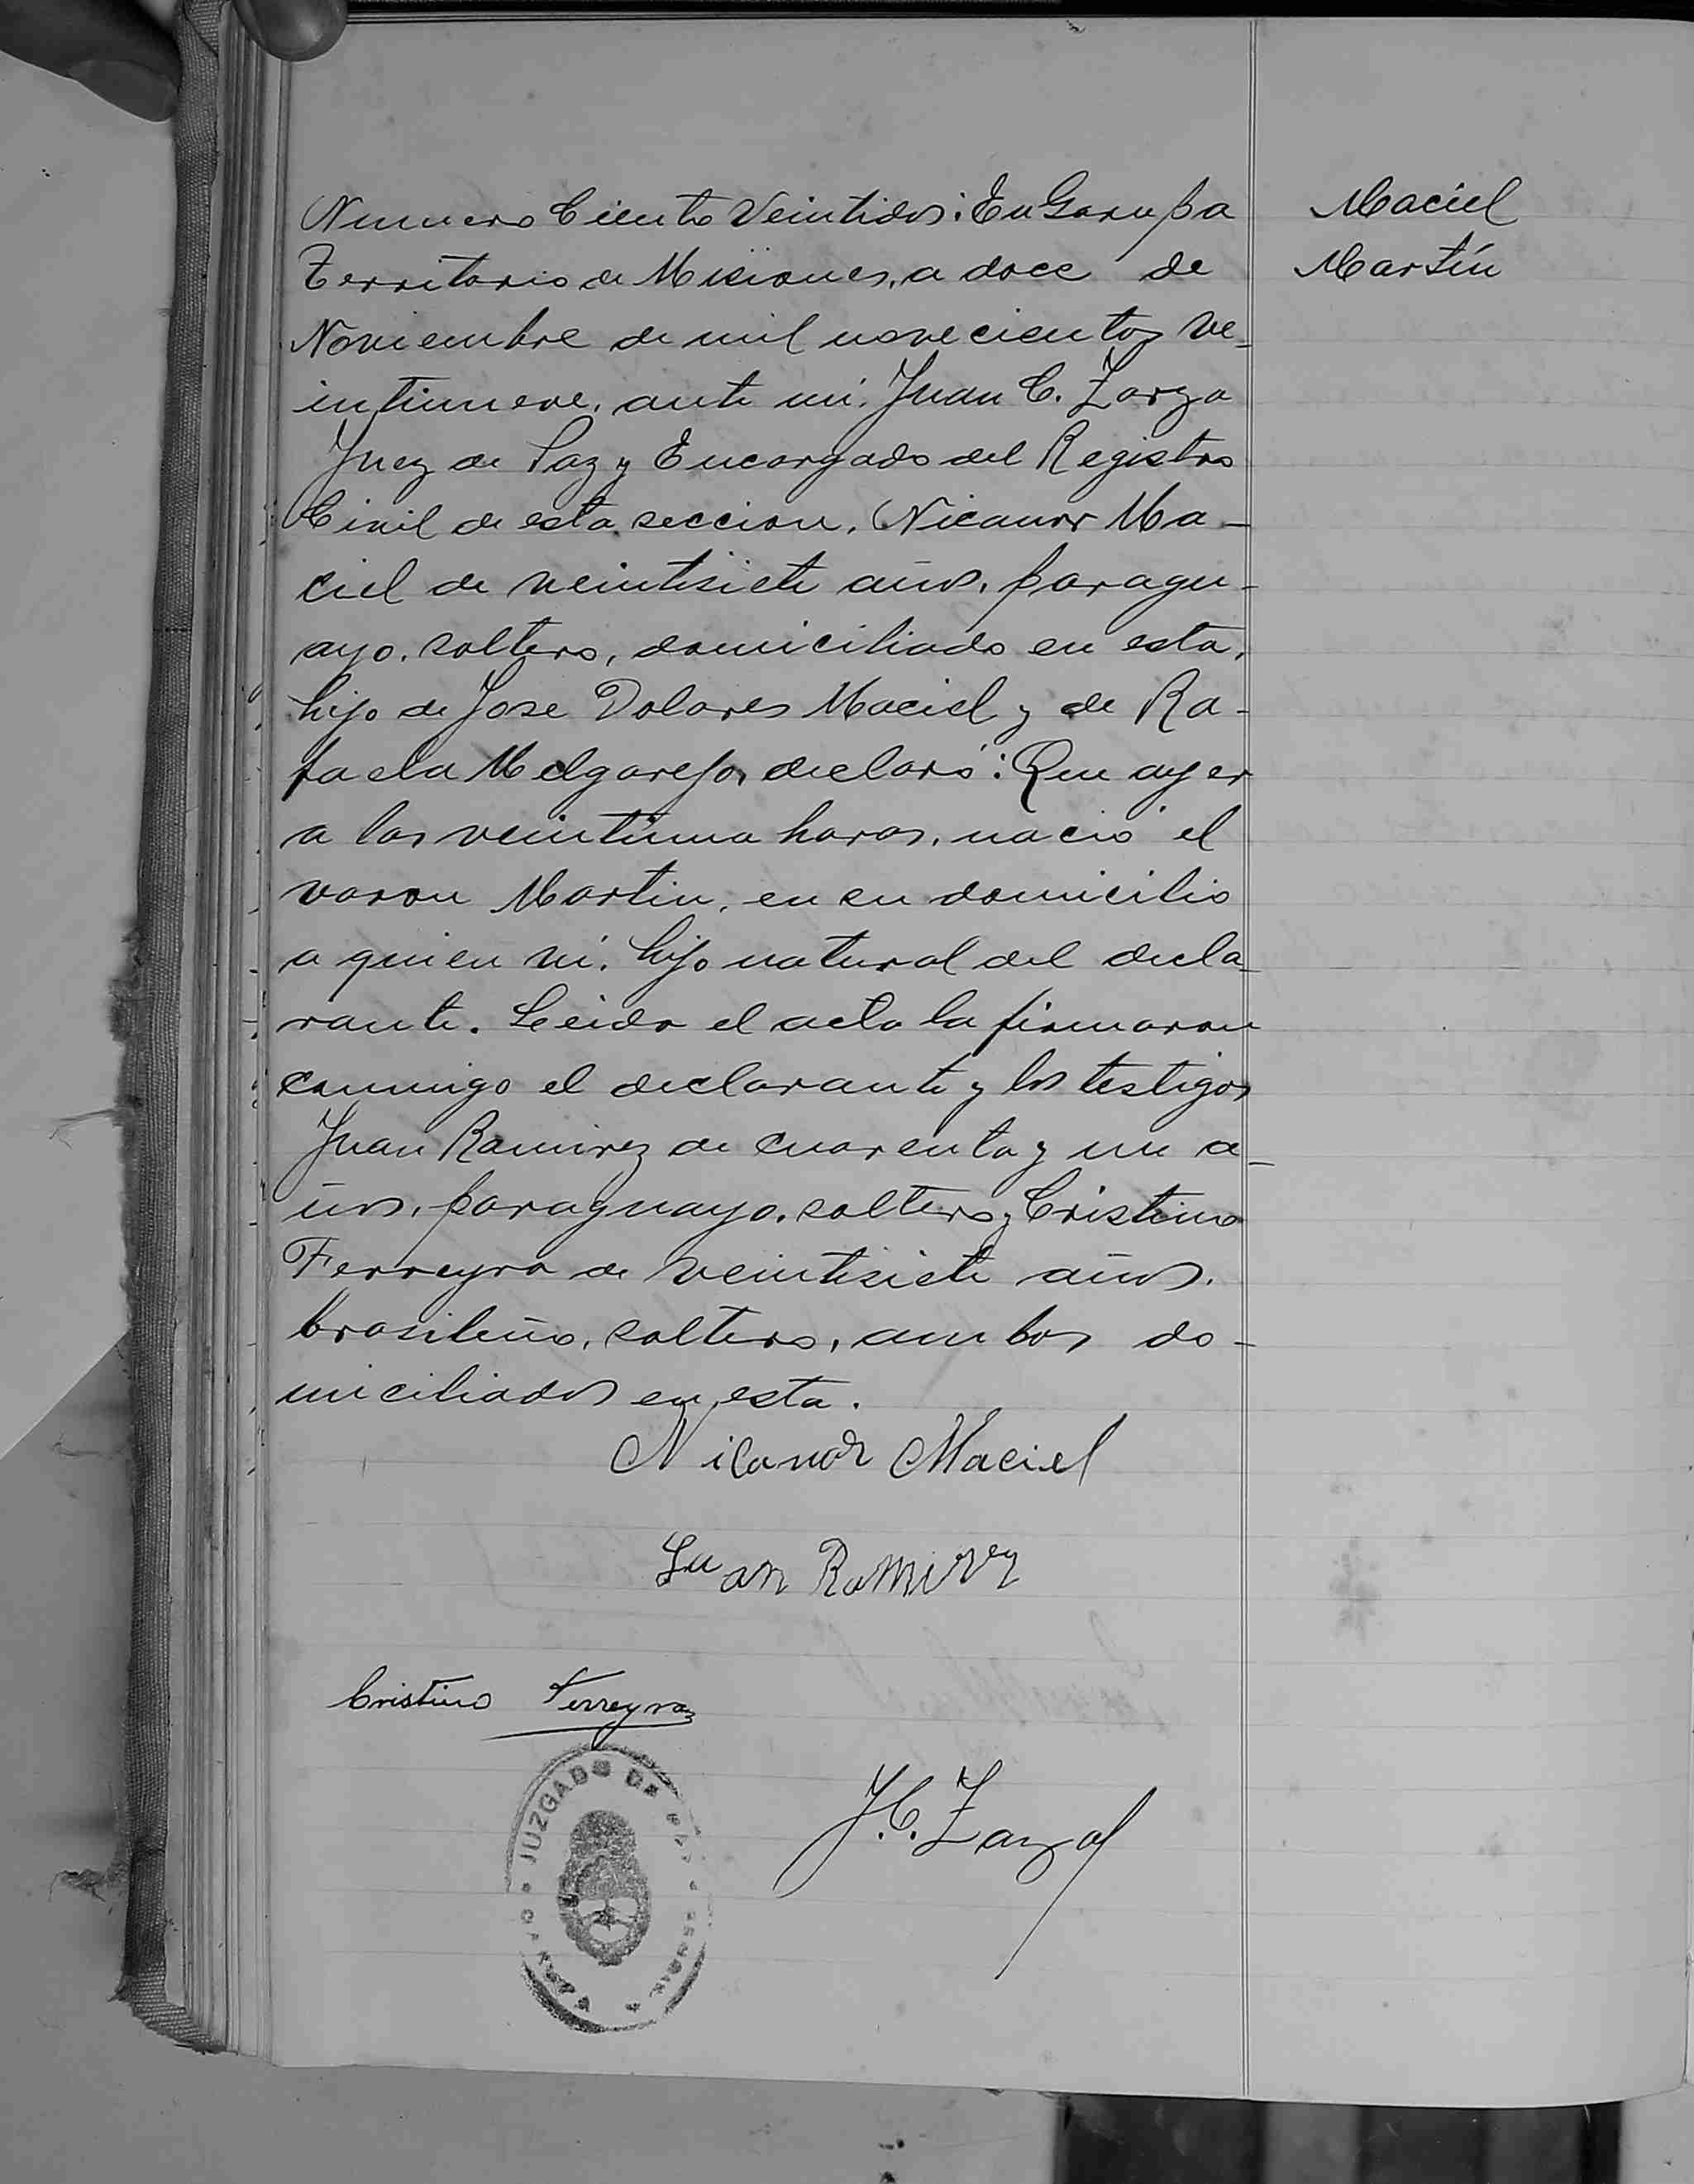 Numero Ciento Veintidos: En Garupa
Territorio de Misiones, a doce de
Noviembre de mil novecientos ve-
intinueve, ante mi, Juan C. Zarza
Juez de Paz y Encargado del Registro
Civil de esta seccion, Nicanor Ma-
ciel de veintisiete años, paragu-
ayo, soltero, domiciliado en esta,
hijo de Jose Dolores Maciel y de Ra-
faela Melgarejo, declaró: Que ayer
a las veintiuna horas, nació el
varon Martin, en su domicilio
a quien vi, hijo natural del decla-
rante. Leida el acta la firmaron
conmigo el declarante y los testigos
Juan Ramirez de cuarenta y un a-
ños, paraguayo, soltero y Cristino
Ferreyra de veintisiete años,
brasileño, soltero, ambos do-
miciliados en esta.
Maciel
Martín
Nicanor Maciel
Juan Ramirez
Cristino Ferreyra
J. C. Zarza
JUZGADO DE PAZ
GARUPA